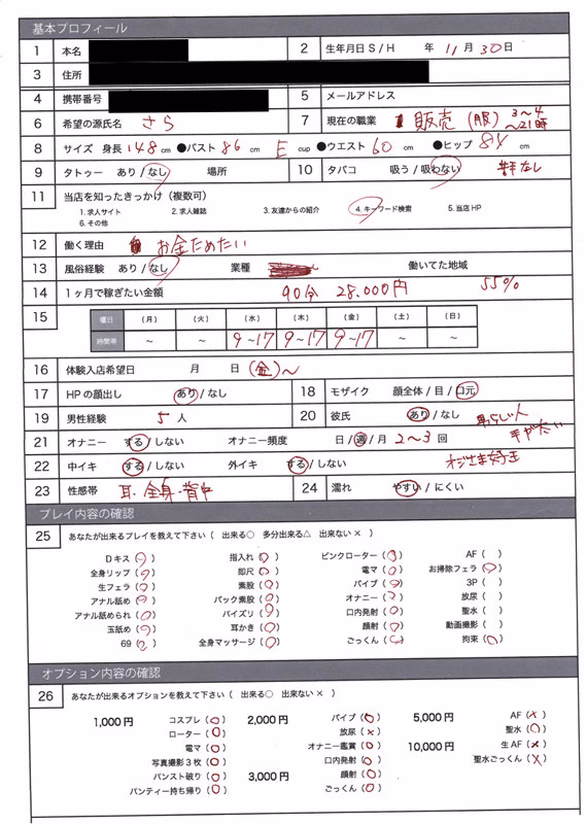 基本プロフィール
1 本名 2 生年月日 S / H 年 11月 30日
3 住所
4 携帯番号 5 メールアドレス
6 希望の源氏名 さら 7 現在の職業 販売 (服) 3〜4 〜21時
8 サイズ 身長 148 cm ●バスト 86 cm E cup ●ウエスト 60 cm ●ヒップ 84 cm
9 タトゥー あり / なし 場所 10 タバコ 吸う / 吸わない なし
11 当店を知ったきっかけ(複数可)
1. 求人サイト 2. 求人雑誌 3. 友達からの紹介 4. キーワード検索 5. 当店 HP
6. その他
12 働く理由 お金ためたい
13 風俗経験 あり / なし 業種 働いてた地域
14 1ヶ月で稼ぎたい金額 90分 28.000円 55%
15 曜日 (月) (火) (水) (木) (金) (土) (日)
時間帯 〜 〜 9〜17 9〜17 9〜17 〜 〜
16 体験入店希望日 月 日 (金)〜
17 HP の顔出し あり / なし 18 モザイク 顔全体 / 目 / 口元
19 男性経験 5 人 20 彼氏 あり / なし
21 オナニー する / しない オナニー頻度 日 / 週 / 月 2〜3 回
22 中イキ する / しない 外イキ する / しない オジさま好き
23 性感帯 耳. 全身. 背中 24 濡れ やすい / にくい
プレイ内容の確認
25 あなたが出来るプレイを教えて下さい ( 出来る○ 多分出来る△ 出来ない× )
Dキス (○) 指入れ (○) ピンクローター (○) AF ( )
全身リップ (○) 即尺 (○) 電マ (○) お掃除フェラ (○)
生フェラ (○) 素股 (○) バイブ (○) 3P ( )
アナル舐め (○) バック素股 (○) オナニー (○) 放尿 ( )
アナル舐められ (○) パイズリ (○) 口内発射 (○) 聖水 ( )
玉舐め (○) 耳かき (○) 顔射 (○) 動画撮影 ( )
69 (○) 全身マッサージ (○) ごっくん (○) 拘束 (○)
オプション内容の確認
26 あなたが出来るオプションを教えて下さい ( 出来る○ 出来ない× )
1,000円 コスプレ (○) 2,000円 バイブ (○) 5,000円 AF (×)
ローター (○) 放尿 (×) 聖水 (○)
電マ (○) オナニー鑑賞 (○) 10,000円 生AF (×)
写真撮影3枚 (○) 口内発射 (○) 聖水ごっくん (×)
パンスト破り (○) 3,000円 顔射 (○)
パンティー持ち帰り (○) ごっくん (○)